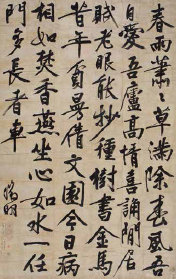 春雨蕭蕭草滿除春風吾
自愛吾廬高情喜誦閒居
賦老眼能抄種樹書金馬
昔年貧曼倩文園今日病
相如焚香燕坐心如水一任
門多長者車
徵明